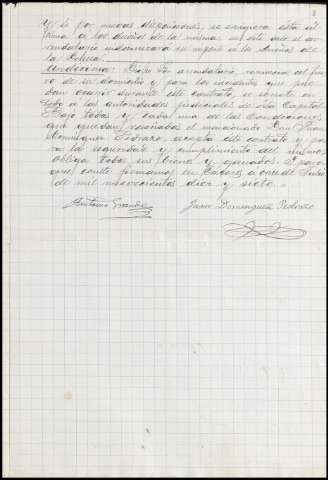 y si por nuevas disposiciones, se exigiera esta ul
tima a los dueños de la misma, en este caso el ar
rendatario indemnizará su importe a los dueños de
la Dehesa.
Undécima: Dicho Sr. arrendatario, renuncia al fue
ro de su domicilio y para los incidentes que pue
dan ocurrir durante este contrato, se somete en
todo a las autoridades judiciales de esta Capital.
Bajo todas y cada una de las condiciones
que quedan reseñadas el mencionado Don Juan
Domínguez Pedrazo, acepta este contrato y pa
ra la seguridad y cumplimiento del mismo,
obliga todos sus bienes y ganados. Y para
que conste firmamos en Cáceres a once de Junio
de mil novecientos diez y siete.
Antonio Grande
Juan Dominguez Pedrazo